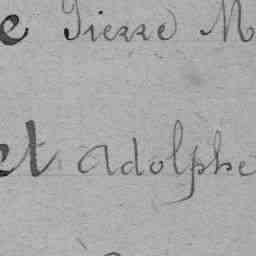 e Pierre M
et Adolphe